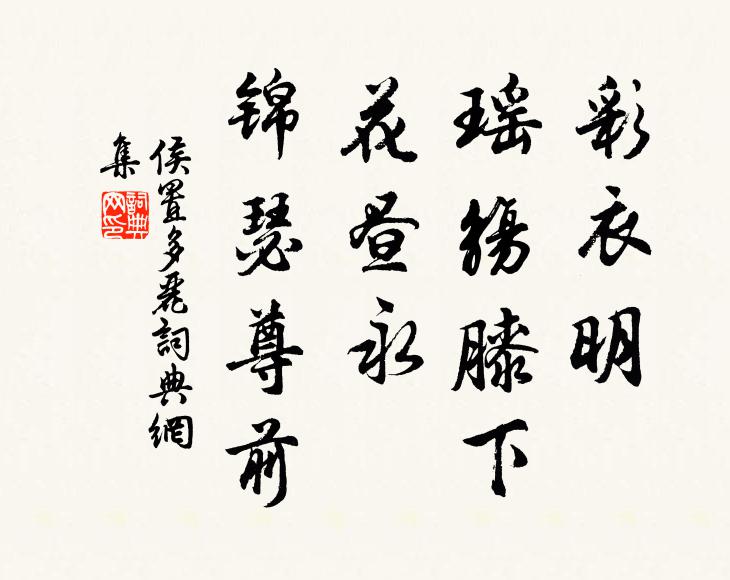 彩衣明
瑶觞膝下
花昼永
锦瑟尊前
侯置多丽詞典網
集
詞典
网印